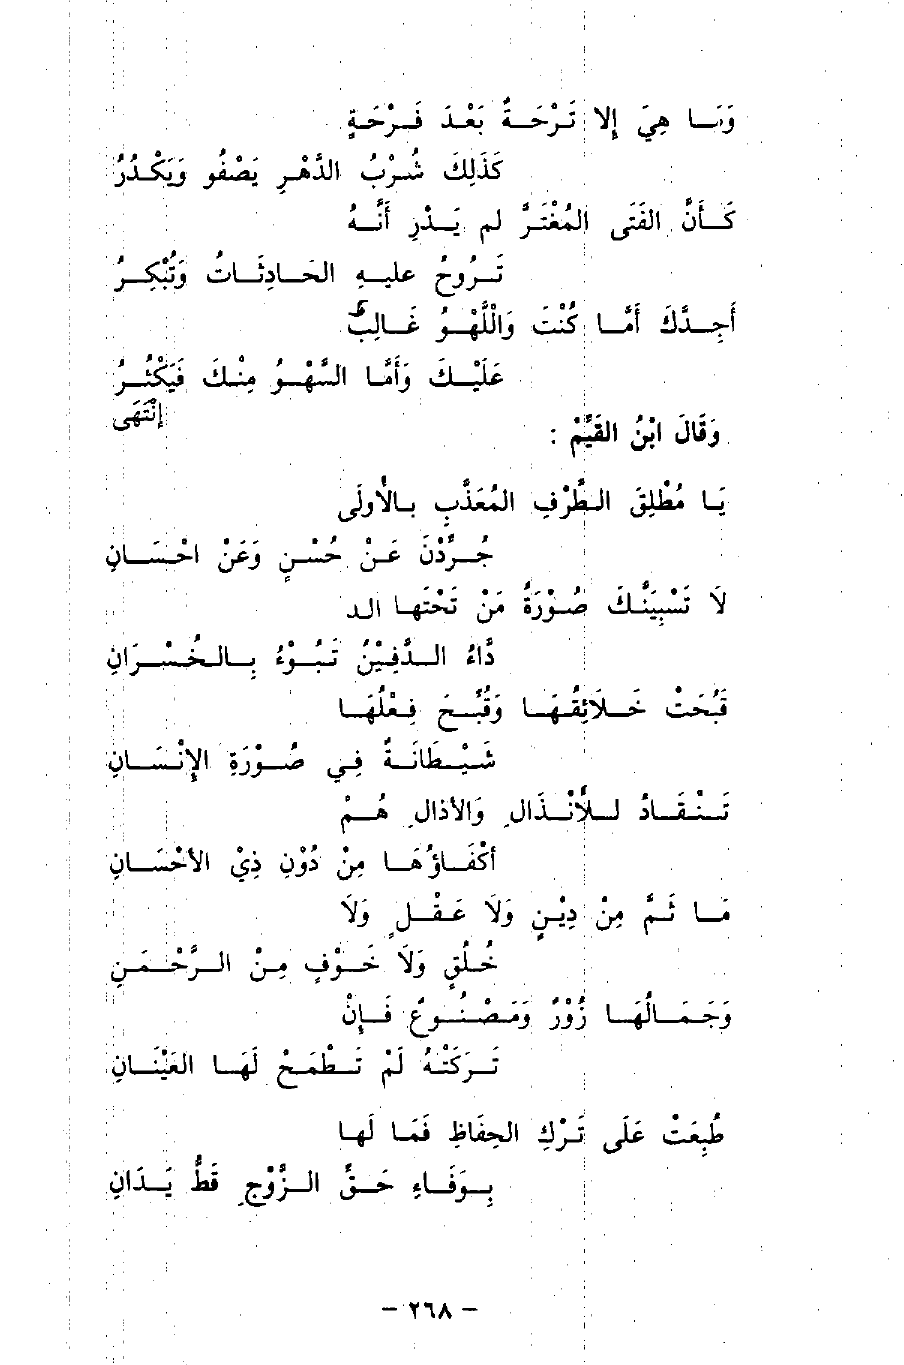 وَمَا هِيَ إِلا تَرْحَةٌ بَعْدَ فَرْحَةٍ
كَذَلِكَ شُرْبُ الدَّهْرِ يَصْفُو وَيَكْدُرُ
كَأَنَّ الفَتَى المُغْتَرَّ لم يَدْرِ أَنَّهُ
تَرُوحُ عليهِ الحَادِثَاتُ وَتُبْكِرُ
أَجِدَّكَ أَمَّا كُنْتَ وَاللَّهْوُ غَالِبٌ
عَلَيْكَ وَأَمَّا السَّهْوُ مِنْكَ فَيَكْثُرُ
إِنْتَهَى
وَقَالَ ابْنُ القَيِّمْ :
يَا مُطْلِقَ الطَّرْفِ المُعَذَّبِ بالأولَى
جُرِّدْنَ عَنْ حُسْنٍ وَعَنْ احْسَانِ
لَا تَسْبِيَنَّكَ صُوْرَةٌ مَنْ تَحْتَها الد
دَّاءُ الدَّفِيْنُ تَبُوْءُ بِالخُسْرَانِ
قَبُحَتْ خَلَائِقُهَا وَقُبِّحَ فِعْلُهَا
شَيْطَانَةٌ فِي صُوْرَةِ الإِنْسَانِ
تَنْقَادُ لِلأَنْذَالِ وَالأذالِ هُمْ
أكْفَاؤُهَا مِنْ دُوْنِ ذِيْ الأحْسَانِ
مَا ثَمَّ مِنْ دِيْنٍ وَلَا عَقْلٍ وَلَا
خُلُقٍ وَلَا خَوْفٍ مِنْ الرَّحْمَنِ
وَجَمَالُهَا زُوْرٌ وَمَصْنُوعٌ فَإِنْ
تَرَكَتْهُ لَمْ تَطْمَحْ لَهَا العَيْنَانِ
طُبِعَتْ عَلَى تَرْكِ الحِفَاظِ فَمَا لَها
بِوَفَاءِ حَقِّ الزَّوْجِ قَطُّ يَدَانِ
– ٢٦٨ –